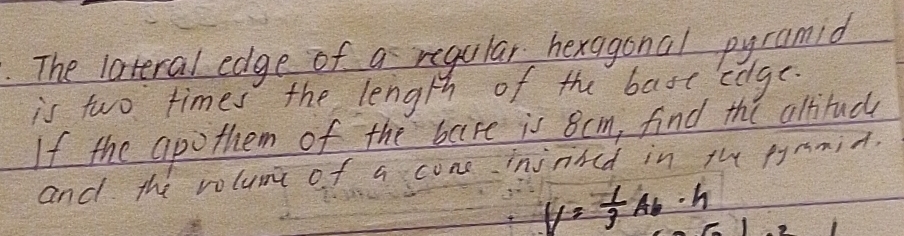 . The lateral edge of a regular hexagonal pyramid
is two times the length of the base edge.
If the apothem of the base is 8cm, find the altitude
and the volume of a cone inscribed in the pyramid.
V = 1/3 Ab · h